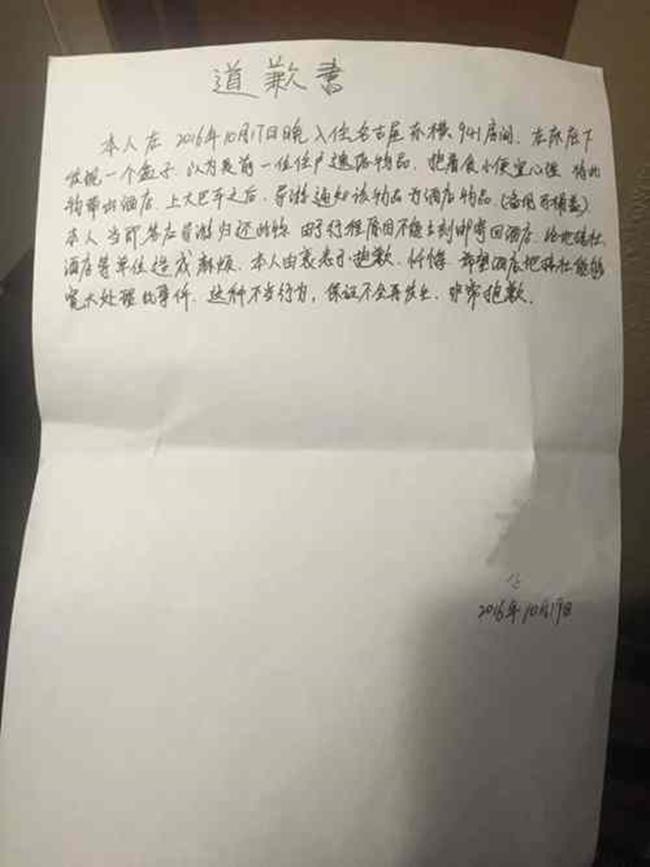 道歉書
本人在2016年10月17日晚入住名古屋东横941房间，在床底下
发现一个盒子，以为是前一位住户遗落物品，抱着贪小便宜心理，将此
物带出酒店，上大巴车之后，导游通知该物品为酒店物品（备用马桶盖）
本人当即答应导游归还此物，由于行程原因不能立刻邮寄回酒店，给地接社
酒店等单位造成麻烦，本人由衷表示抱歉，忏悔，希望酒店地接社能够
宽大处理此事件，这种不当行为，保证不会再发生，非常抱歉
2016年10月19日